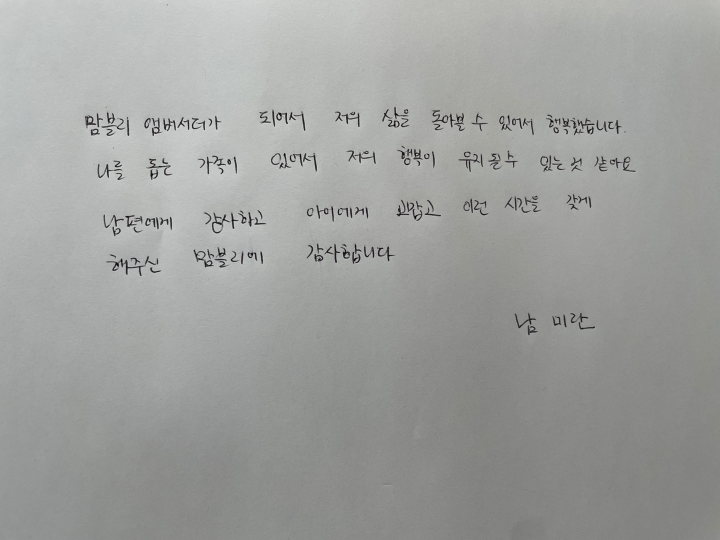 맘블리 앰버서더가 되어서 저의 삶을 돌아볼 수 있어서 행복했습니다.
나를 돕는 가족이 있어서 저의 행복이 유지 될 수 있는 것 같아요
남편에게 감사하고 아이에게 고맙고 이런 시간을 갖게
해주신 맘블리에 감사합니다
남 미란